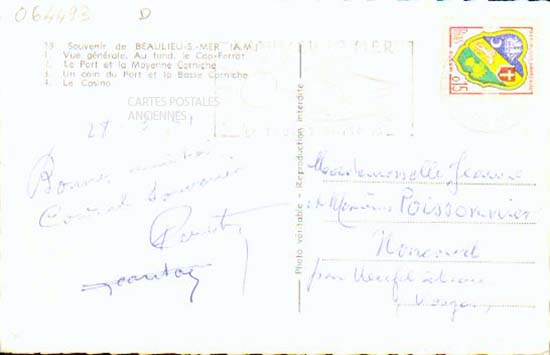 064493 D
19 Souvenir de BEAULIEU-S.-MER (A.M.)
1. Vue générale. Au fond, le Cap-Ferrat
2. Le Port et la Moyenne Corniche
3. Un coin du Port et la Basse Corniche
4. Le Casino
CARTES POSTALES
ANCIENNES
Bonne amitié
Cordial souvenir
Photo véritable - Reproduction interdite
0,15
Mademoiselle Jeanne
et Monsieur Poissonnier
Noncourt
par Neufchâteau
Vosges